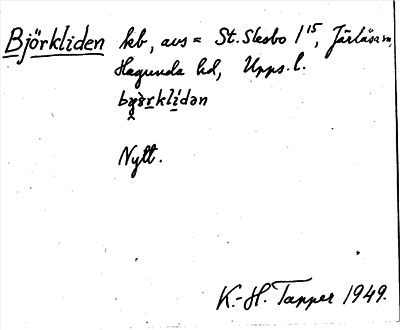 Björkliden heb, avs = St. Slesbo 1¹⁵, Järlåsa sn,
Hagunda hd, Upps. l.
Nytt.
K.-H. Tapper 1949.